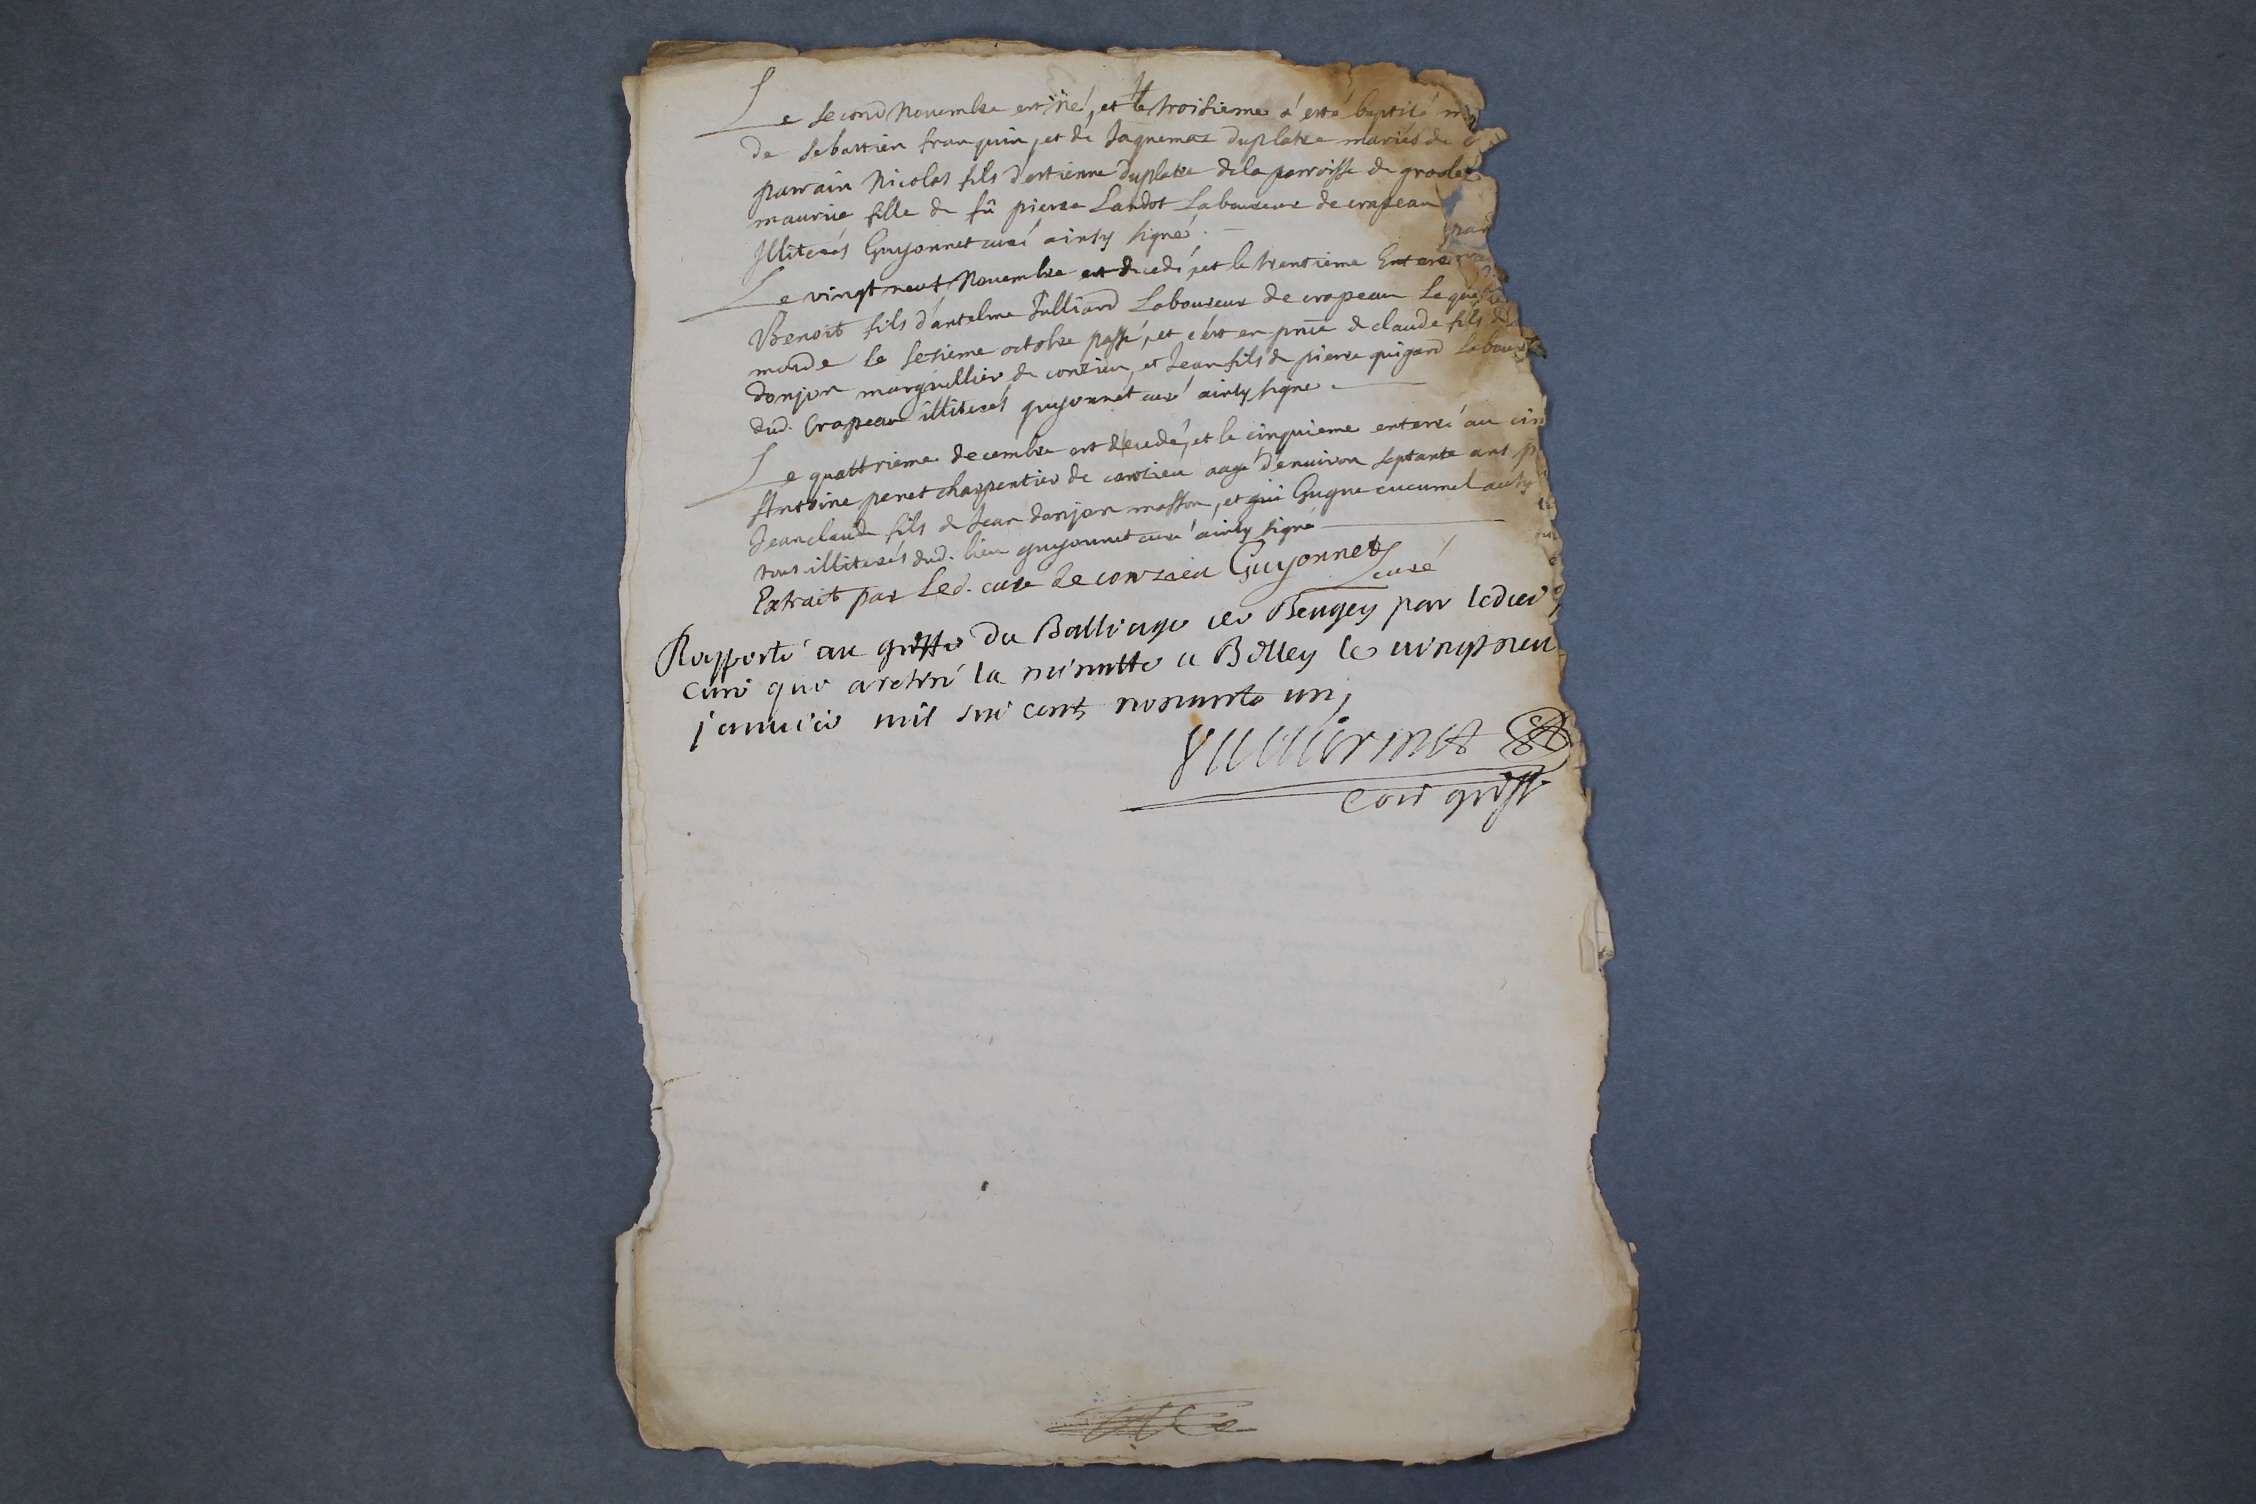 Le second Novembre est né, et le troisieme a esté baptisé
de sebastien franquin, et de Jaquemaz duplatre mariés de
parrain Nicolas fils d'estienne duplatre de la parroisse de grolee
maurise fille de fû pierre Landot Laboureur de crapeau
Illiterés Guyonnet curé ainsy signé.
Le vingt neuf Novembre est decedé, et le trentieme Enteré
Benoit fils d'antelme Julliard Laboureur de crapeau lequel
monde le sezieme octobre passé, et c'est en pnce de claude fils de
donjon marguillier de conzieu, et Jean fils de pierre guigard Labour
dud. Crapeau illiterés guyonnet curé ainsy signé.
Le quattrieme decembre est decedé, et le cinquieme enterré au
Antoine penet charpentier de conzieu aagé d'environ septante ans
Jeanclaude fils de Jean donjon masson, et gui Gugne cucumel
tous illiterés dud. lieu guyonnet curé ainsy signé
Extrait par Led. curé de conzieu Guyonnet
curé
Rapporté au greffe du Balliage de Beugey par ledict
curé que a retiré la minutte a Belley le vingt neu
janvier mil six cents nonante un,
com greff.